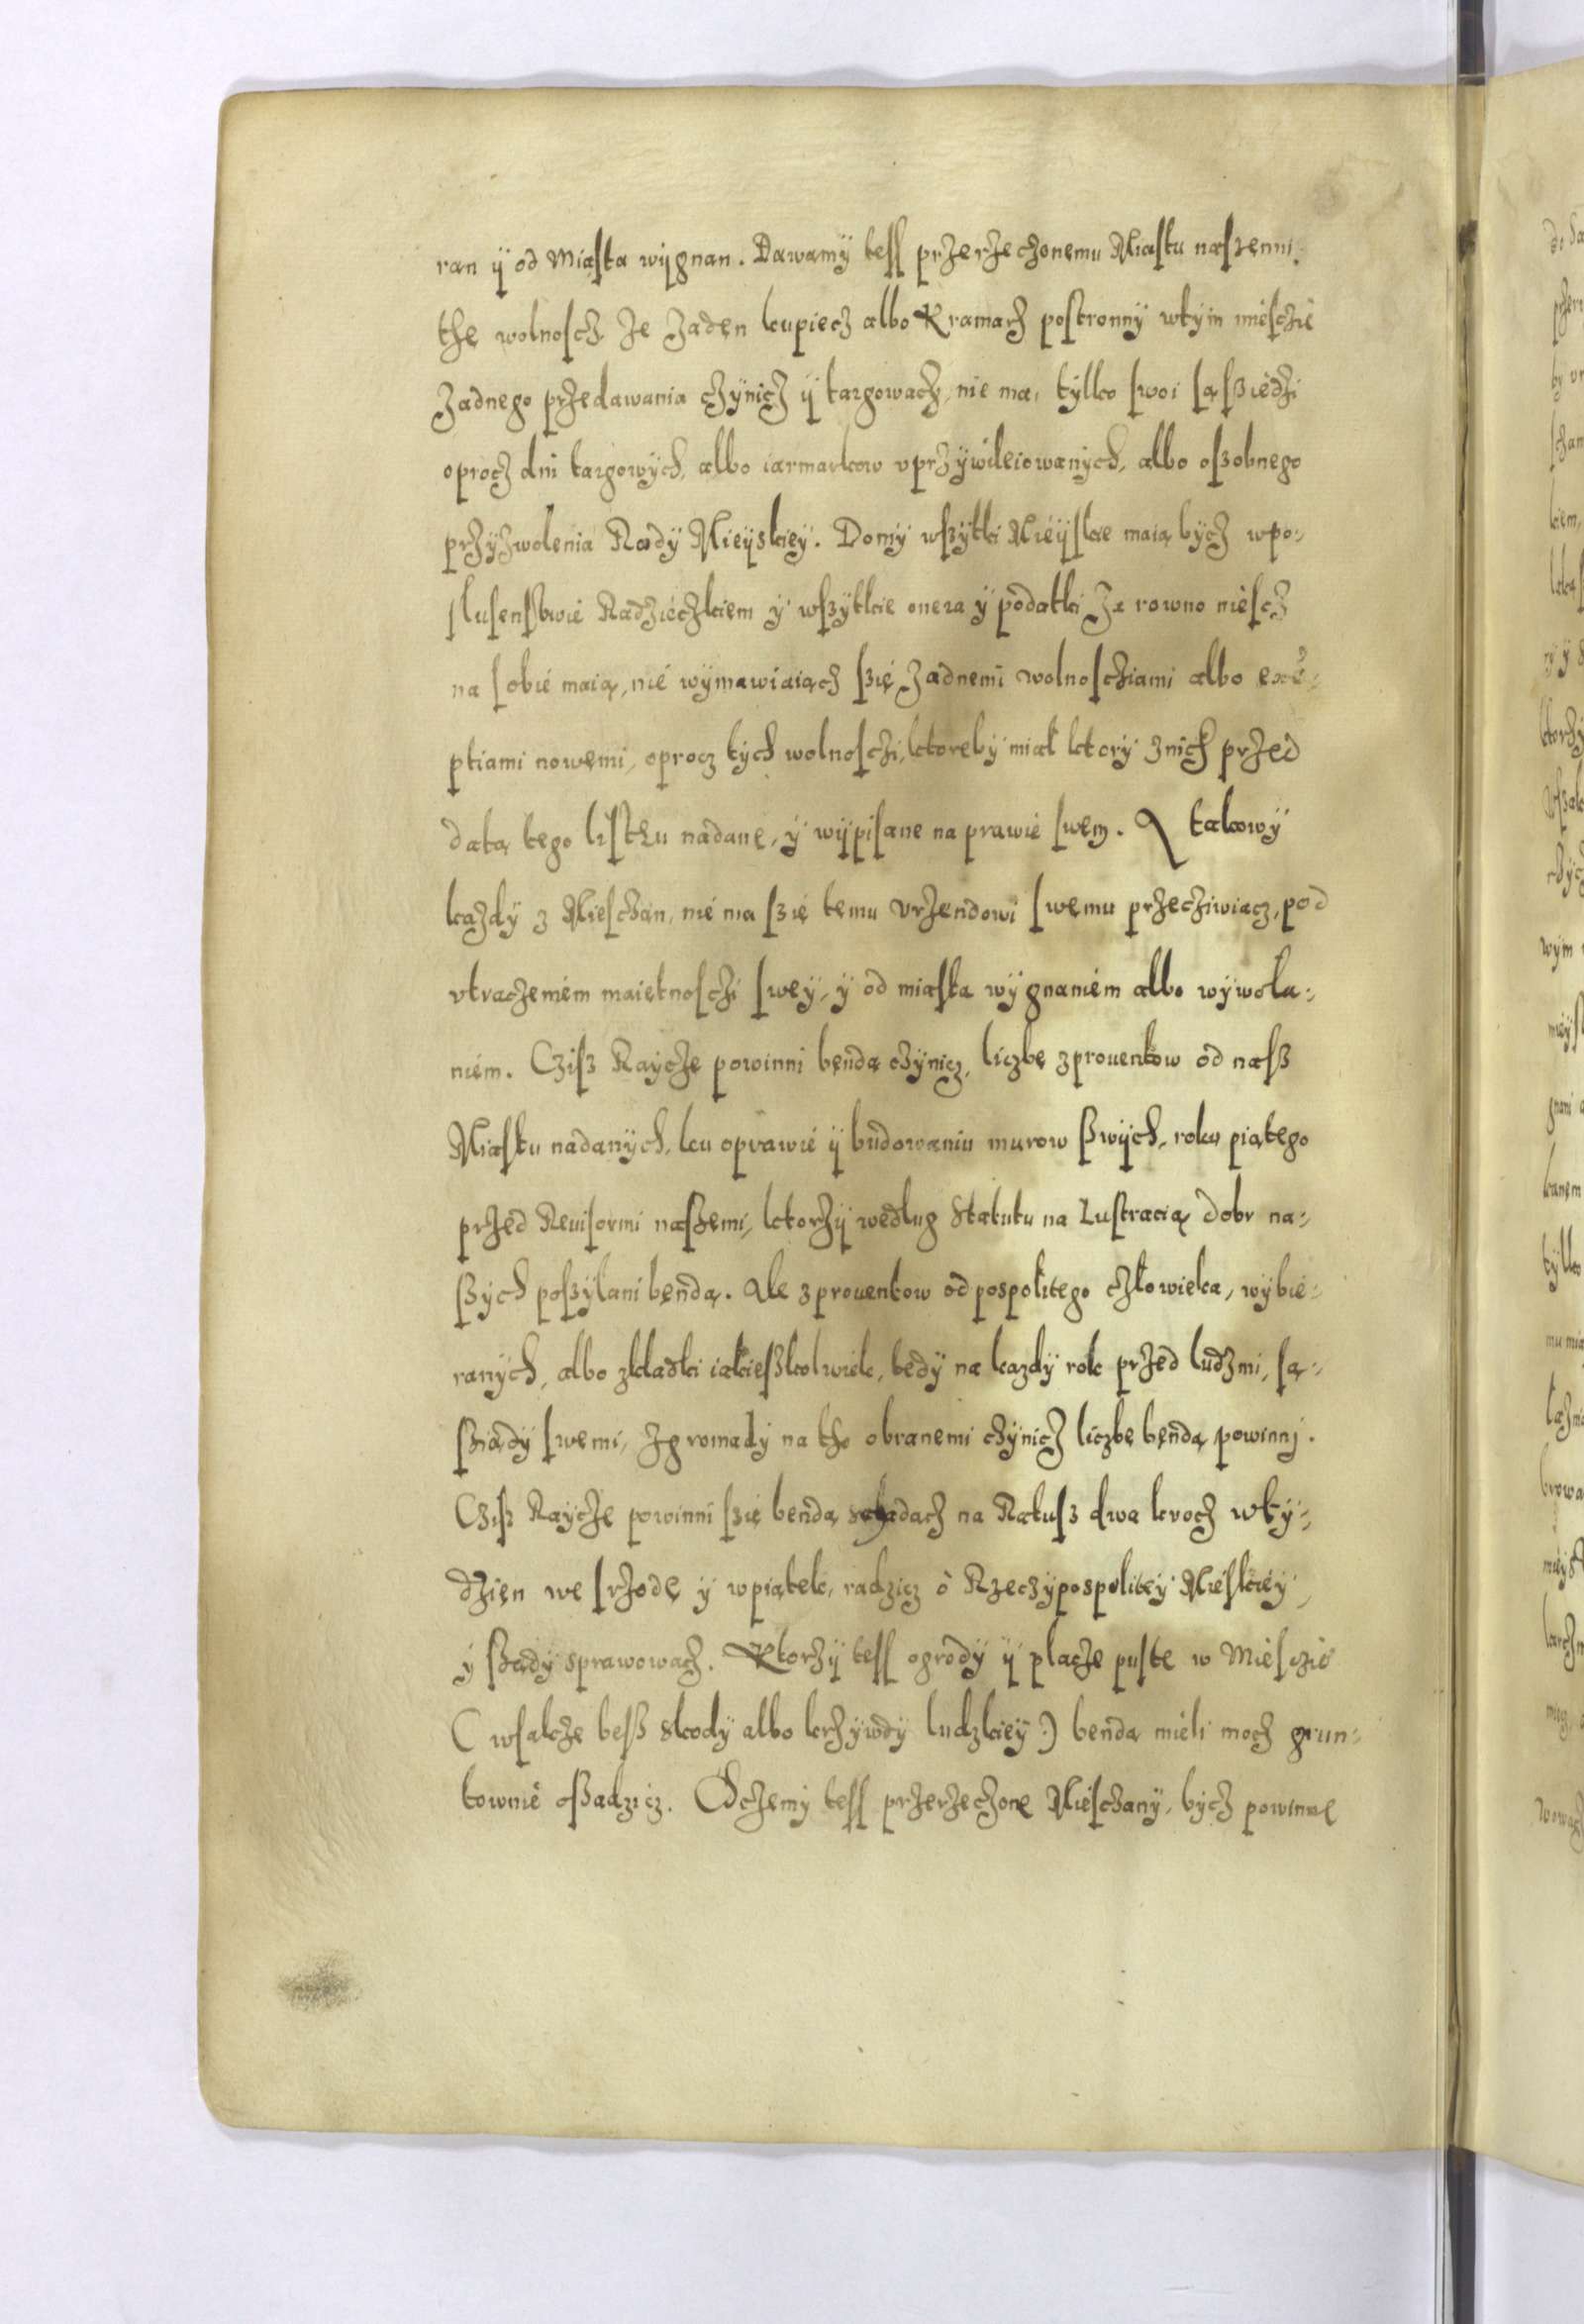 ran ÿ od Miasta wÿgnan. Dawamÿ tess przerzeczonemu Miastu naszemu
the wolnoscz że żaden kupiecz albo Kramarz postronnÿ wtÿm miesczie
żadnego przedawania czÿnicz ÿ targowacz, nie ma, tÿlko swoi sąsziedzi
oprocz dni targowÿch, albo iarmarkow vprzÿwileiowanÿch, albo oszobnego
przÿzwolenia Radÿ Mieÿskieÿ. Domÿ wszÿtki Mieÿskie maią bÿcz wpo-
slusenstwie Radzieczkiem ÿ wszÿtkie onera ÿ podatki za rowno niescz
na sobie maią, nie wÿmawiaiącz szię żadnemi wolnosczami albo exe-
ptiami nowemi, oprocz tÿch wolnosczi, ktorebÿ miał ktorÿ znich przed
datą tego listhu nadane, ÿ wÿpisane na prawie swem. A takowÿ
każdÿ z Miesczan, nie ma szię temu vrzendowi swemu przecziwiacz, pod
vtraczeniem maietnosczi sweÿ, ÿ od miasta wÿgnaniem albo wÿwoła-
niem. Czisz Raÿcze powinni bendą czÿnicz, liczbę zprouentow od nass
Miastu nadanÿch, ku oprawie ÿ budowaniu murow swÿch, roku piątego
przed Reuisormi naszemi, ktorzÿ według Statutu na Lustracią dobr na-
szÿch poszÿlani bendą. Ale zprouentow od pospolitego człowieka, wÿbie-
ranÿch, albo zkładki iakieszkolwiek, tedÿ na kazdÿ rok przed ludzmi, są-
sziadÿ swemi, zgromadÿ na tho obranemi czÿnicz liczbę bendą powinnj.
Czisz Raÿcze powinni szię bendą schadacz na Ratusz dwa krocz wtÿ-
dzien we srzodę ÿ wpiątek, radzicz o Rzeczÿpospoliteÿ Mieskieÿ,
ÿ sządÿ sprawowacz. Ktorzÿ tess ogrodÿ ÿ placze puste w Miesczie
(wsakże bess skodÿ albo krzÿwdÿ ludzkieÿ) bendą mieli mocz grun-
townie osadzicz. Chczemÿ tess przerzeczone Miesczanÿ, bÿcz powinne